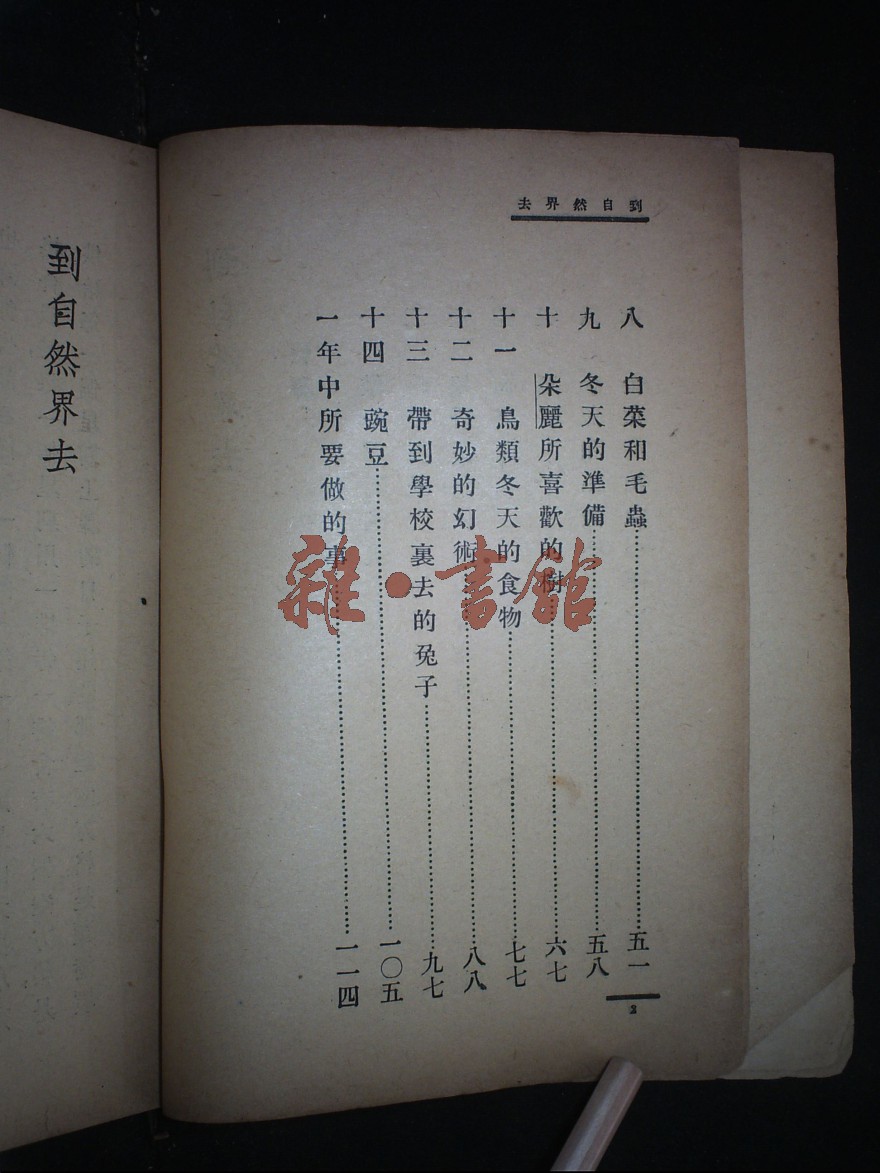 到自然界去
八 白菜和毛蟲 五一
九 冬天的準備 五八
十 朵麗所喜歡的樹 六七
十一 鳥類冬天的食物 七七
十二 奇妙的幻術 八八
十三 帶到學校裏去的兔子 九七
十四 豌豆 一〇五
一年中所要做的事 一一四
2
到自然界去
雜·書館